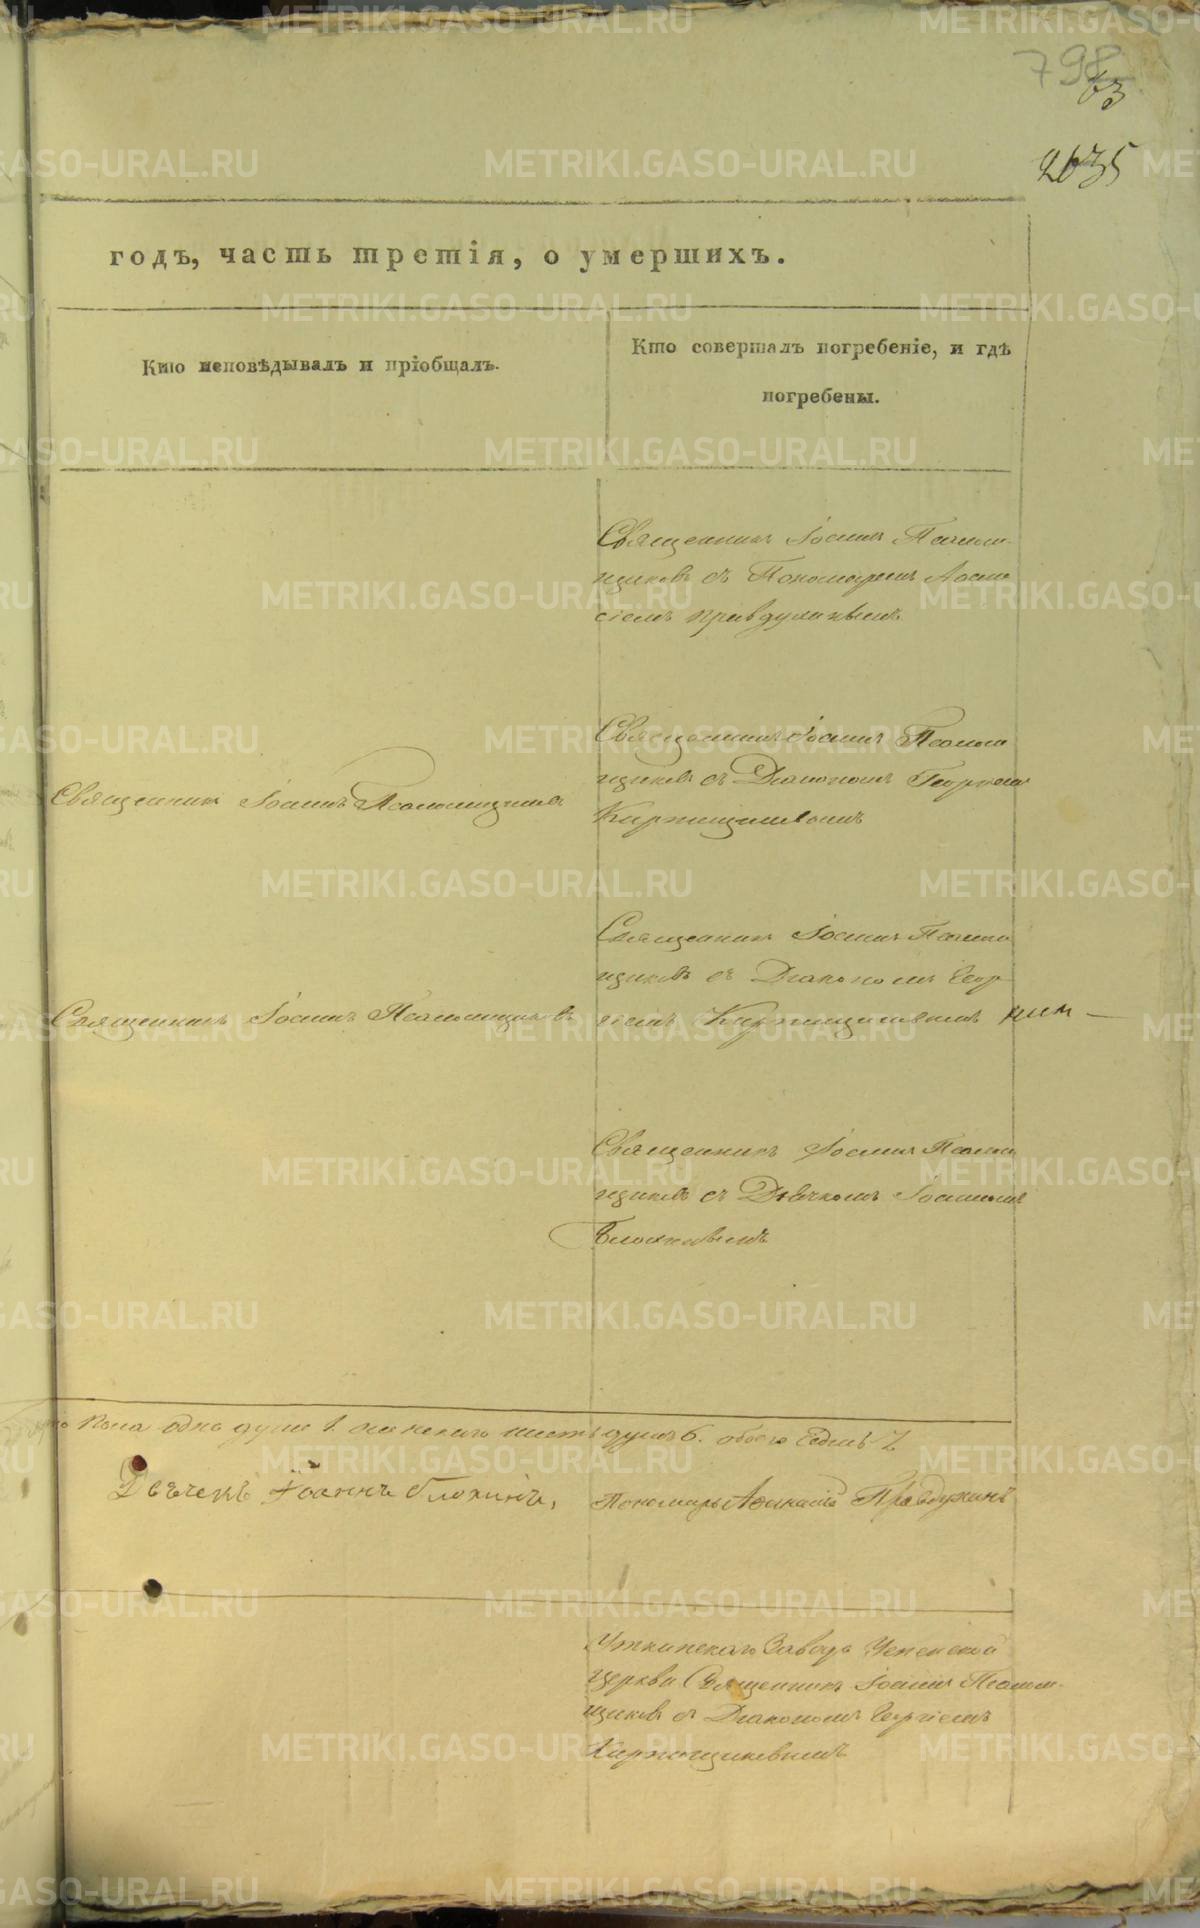 798
63
2635
годъ, часть третія, о умершихъ.
Кто исповѣдывалъ и пріобщалъ.
Кто совершалъ погребеніе, и гдѣ
погребены.
Священникъ Іоаннъ Псалом-
щиковъ съ Пономаремъ Афана
сіемъ Правдухинымъ
Священникъ Іоаннъ Псаломщиковъ
Священникъ Іоаннъ Псалом
щиковъ съ Діакономъ Георгіемъ
Кирпищиковымъ
Священникъ Іоаннъ Псаломщиковъ
Священникъ Іоаннъ Псалом
щиковъ съ Діакономъ Геор
гіемъ Кирпищиковымъ
Священникъ Іоаннъ Псалом
щиковъ съ Дьячкомъ Іоанномъ
Блохинымъ
пола одна душа 1. женскаго шесть душъ 6. обоего седмь 7.
Дьячекъ Іоаннъ Блохинъ,
Пономарь Афанасій Правдухинъ
Уткинскаго Завода Успенской
церкви Священникъ Іоаннъ Псалом-
щиковъ съ Діакономъ Георгіемъ
Кирпищиковымъ
METRIKI.GASO-URAL.RU